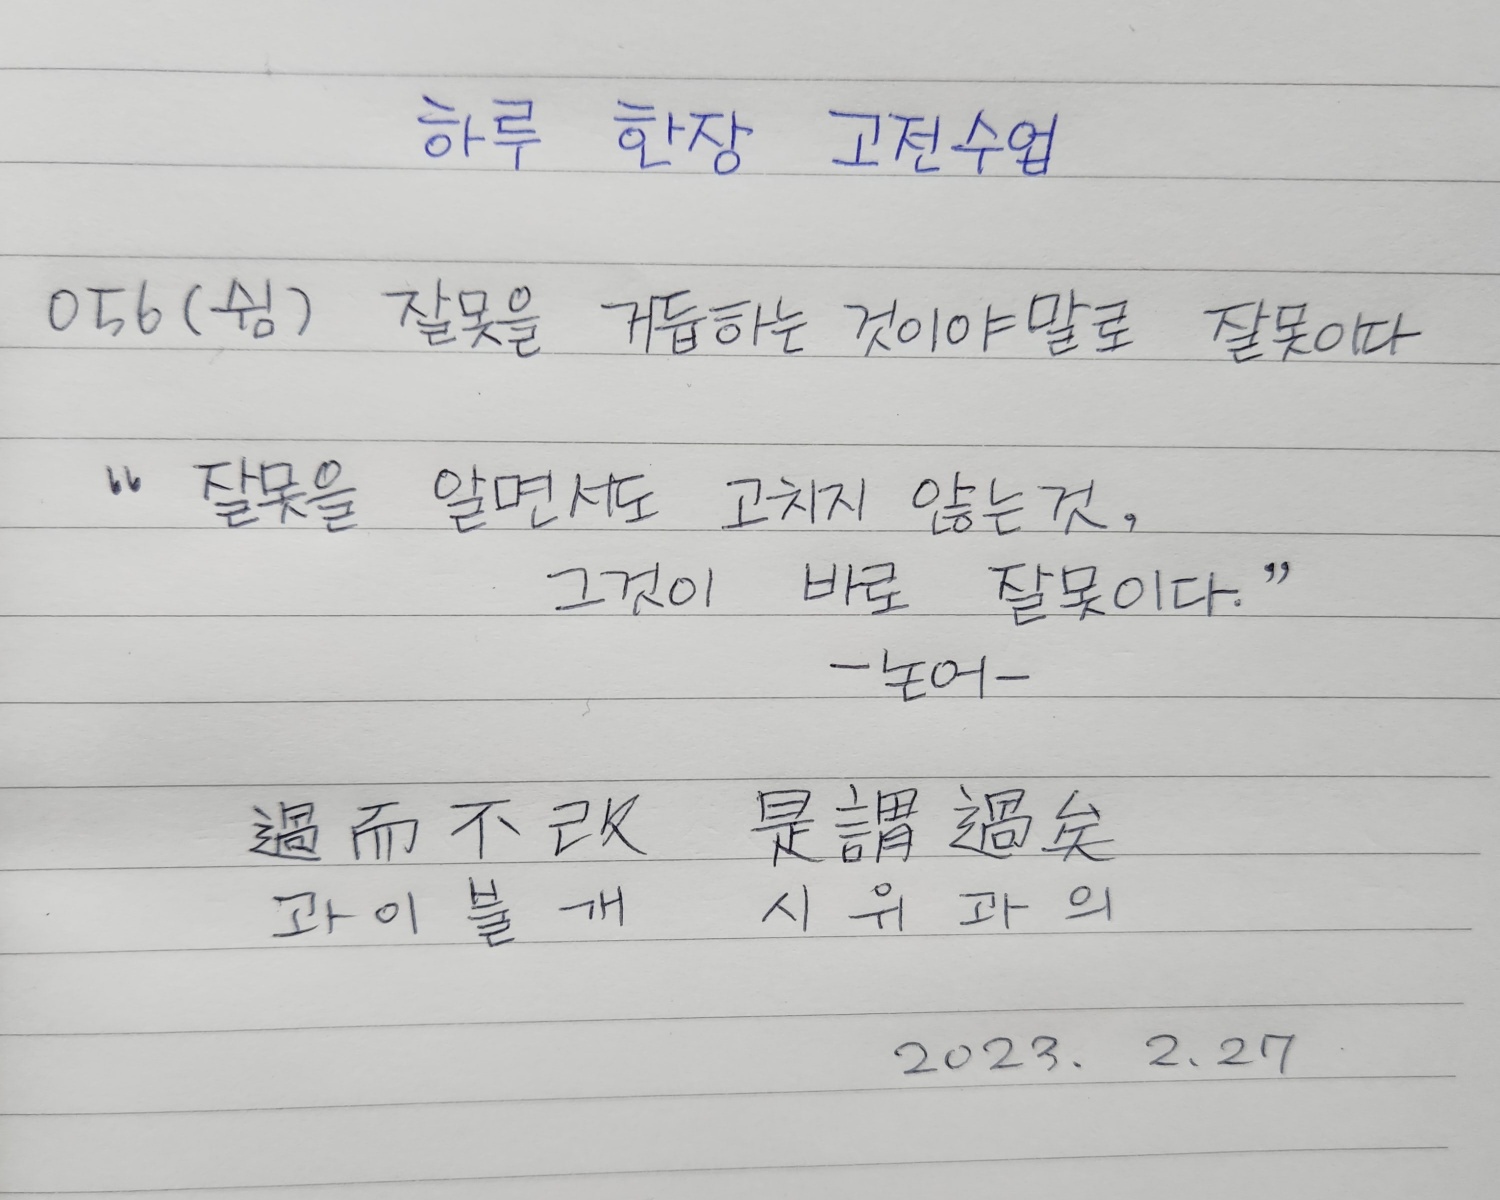 하루 한장 고전수업
056(쉼) 잘못을 거듭하는 것이야말로 잘못이다
“잘못을 알면서도 고치지 않는것,
그것이 바로 잘못이다.”
-논어-
過而不改 是謂過矣
과이불개 시위과의
2023. 2.27